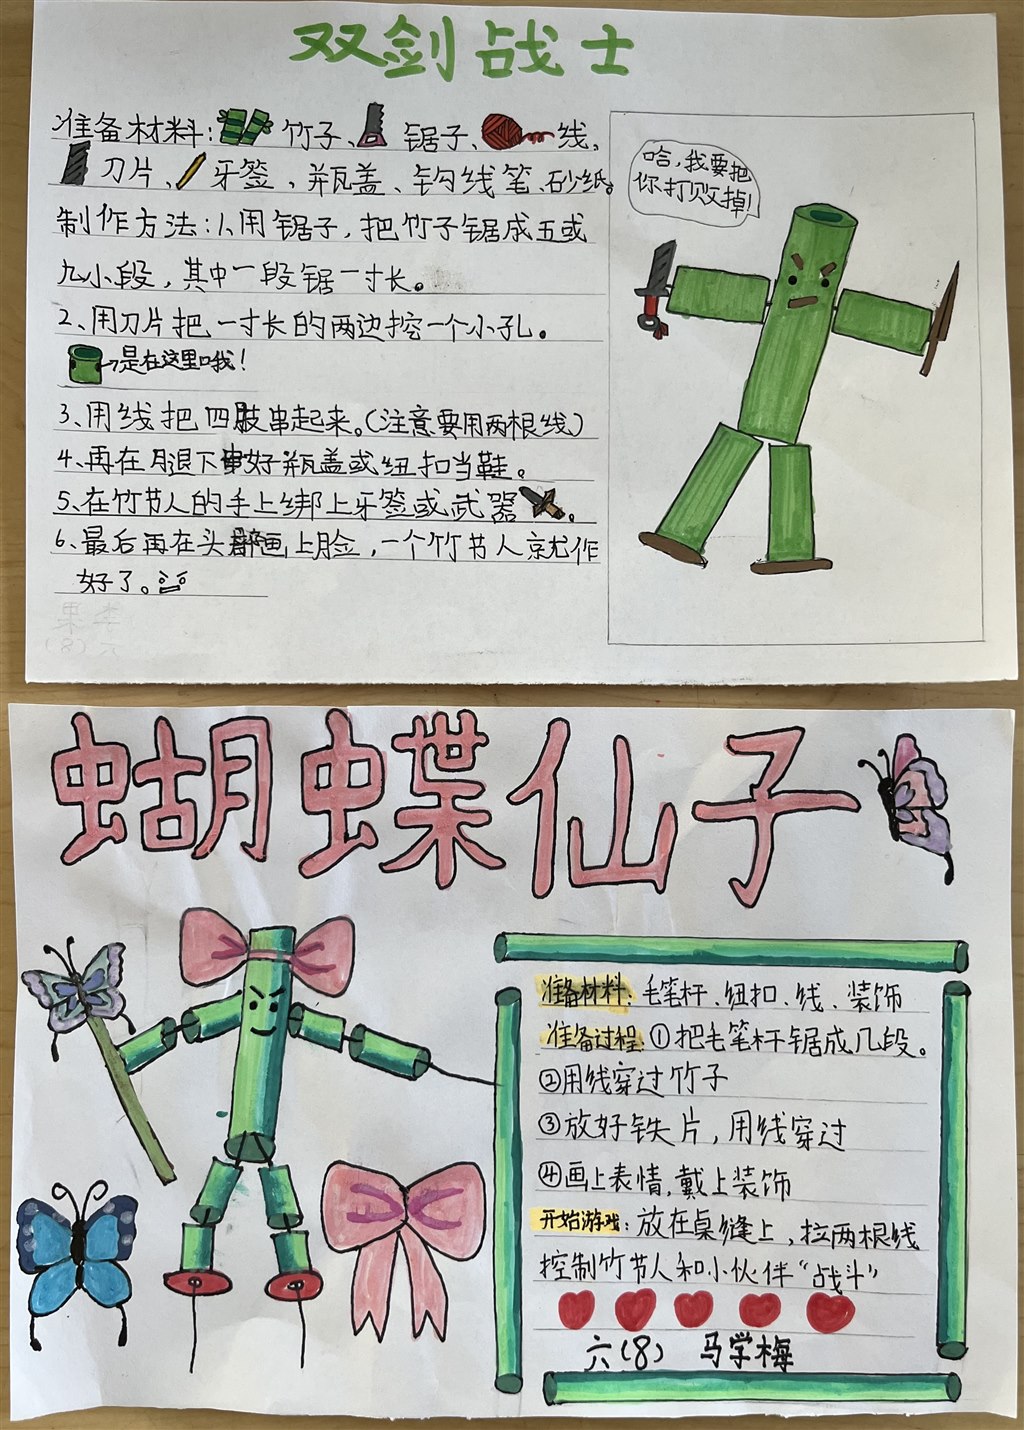 双剑战士
准备材料: 竹子、 锯子、 线,
刀片、 牙签、瓶盖、钩线笔、砂纸。
制作方法:1、用锯子,把竹子锯成五或
九小段,其中一段锯一寸长。
2、用刀片把一寸长的两边挖一个小孔。
→是在这里哦!
3、用线把四肢串起来。(注意要用两根线)
4、再在腿下串好瓶盖或纽扣当鞋。
5、在竹节人的手上绑上牙签或武器 。
6、最后再在头部画上脸,一个竹节人就作
好了。
哈,我要把
你打败掉!
蝴蝶仙子
准备材料:毛笔杆、纽扣、线、装饰
准备过程:①把毛笔杆锯成几段。
②用线穿过竹子
③放好铁片,用线穿过
④画上表情,戴上装饰
开始游戏:放在桌缝上,拉两根线
控制竹节人和小伙伴“战斗”
六(8) 马学梅